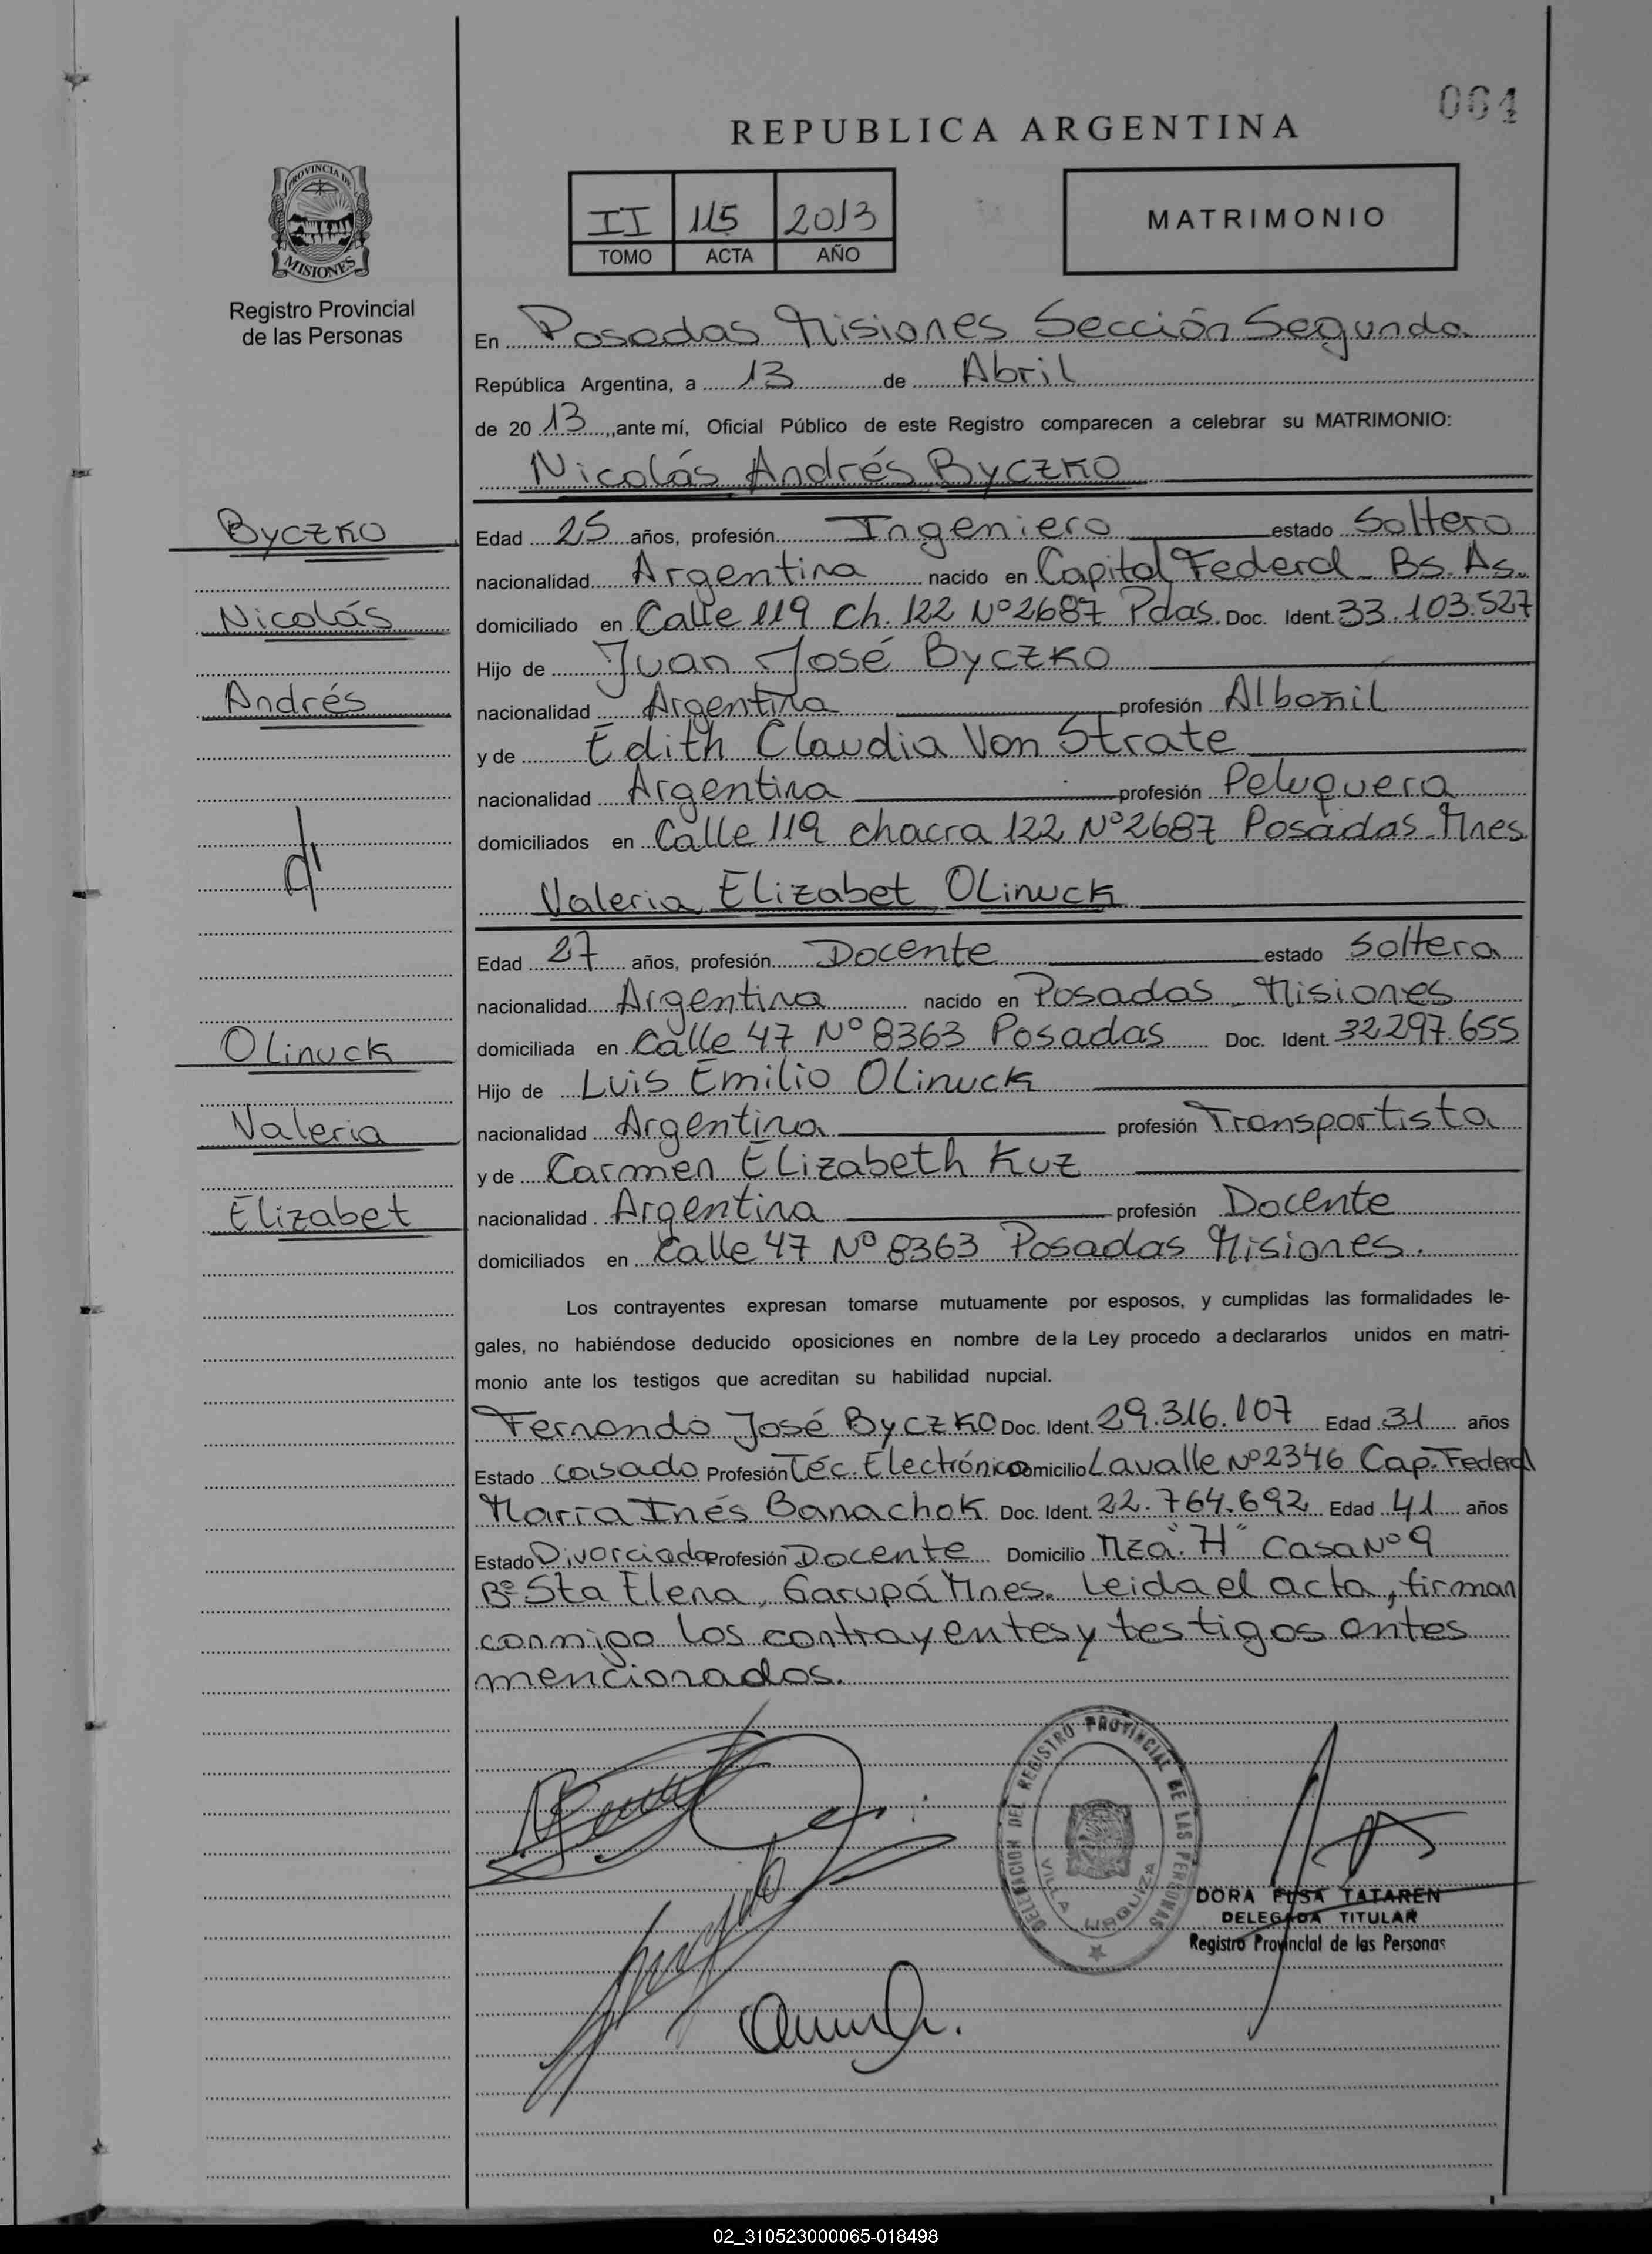 064
REPUBLICA ARGENTINA
PROVINCIA DE
MISIONES
Registro Provincial
de las Personas
II 115 2013
TOMO ACTA AÑO
MATRIMONIO
En Posadas Misiones Sección Segunda
República Argentina, a 13 de Abril
de 20 13, ante mí, Oficial Público de este Registro comparecen a celebrar su MATRIMONIO:
Nicolás Andrés Byczko
Byczko
Nicolás
Andrés
Edad 25 años, profesión Ingeniero estado Soltero
nacionalidad Argentina nacido en Capital Federal - Bs. As.
domiciliado en Calle 119 Ch. 122 Nº 2687 Pdas. Doc. Ident. 33.103.527
Hijo de Juan José Byczko
nacionalidad Argentina profesión Albañil
y de Edith Claudia Von Strate
nacionalidad Argentina profesión Peluquera
domiciliados en Calle 119 chacra 122 Nº 2687 Posadas - Mnes
Valeria Elizabet Olinuck
Edad 27 años, profesión Docente estado Soltera
nacionalidad Argentina nacido en Posadas - Misiones
domiciliada en Calle 47 Nº 8363 Posadas Doc. Ident. 32.297.655
Olinuck
Valeria
Elizabet
Hijo de Luis Emilio Olinuck
nacionalidad Argentina profesión Transportista
y de Carmen Elizabeth Kuz
nacionalidad Argentina profesión Docente
domiciliados en Calle 47 Nº 8363 Posadas Misiones.
Los contrayentes expresan tomarse mutuamente por esposos, y cumplidas las formalidades le-
gales, no habiéndose deducido oposiciones en nombre de la Ley procedo a declararlos unidos en matri-
monio ante los testigos que acreditan su habilidad nupcial.
Fernando José Byczko Doc. Ident. 29.316.107 Edad 31 años
Estado casado Profesión Téc. Electrónico Domicilio Lavalle Nº 2346 Cap. Federal
María Inés Banachok Doc. Ident. 22.764.692 Edad 41 años
Estado Divorciada Profesión Docente Domicilio Mza. "H" Casa Nº 9
Bº Sta Elena, Garupá Mnes. Leida el acta, firman
conmigo los contrayentes y testigos antes
mencionados.
DELEGACION DEL REGISTRO PROVINCIAL DE LAS PERSONAS
VILLA URQUIZA
DORA ELSA TATAREN
DELEGADA TITULAR
Registro Provincial de las Personas
02_310523000065-018498